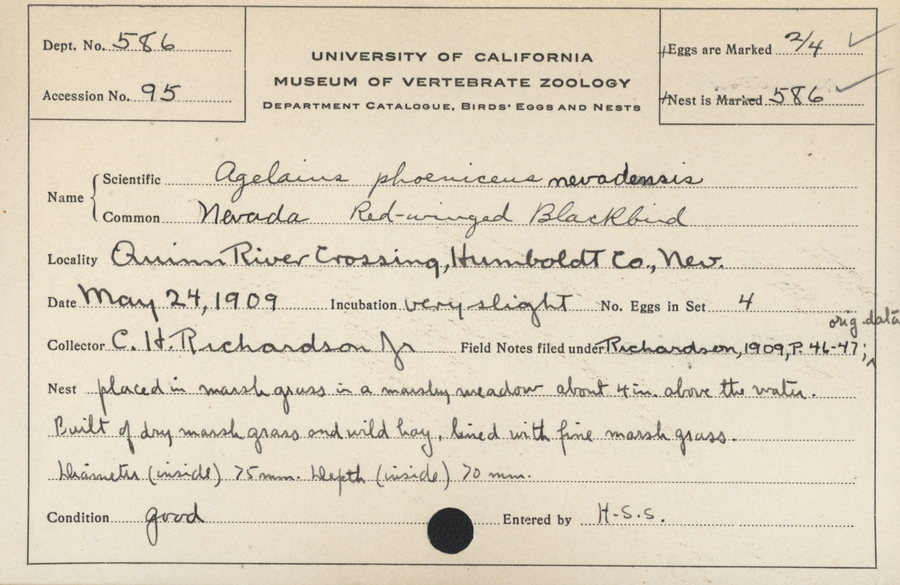 Dept. No. 586
Accession No. 95
UNIVERSITY OF CALIFORNIA
MUSEUM OF VERTEBRATE ZOOLOGY
DEPARTMENT CATALOGUE, BIRDS' EGGS AND NESTS
Eggs are Marked 2/4
Nest is Marked 586
Name
Scientific Agelaius phoeniceus nevadensis
Common Nevada Red-winged Blackbird
Locality Quinn River Crossing, Humboldt Co., Nev.
Date May 24, 1909 Incubation very slight No. Eggs in Set 4
orig data
Collector C. H. Richardson Jr Field Notes filed under Richardson, 1909, P. 46-47;
Nest placed in marsh grass in a marshy meadow about 4 in. above the water.
Built of dry marsh grass and wild hay, lined with fine marsh grass.
Diameter (inside) 75 mm. Depth (inside) 70 mm.
Condition good Entered by H.S.S.